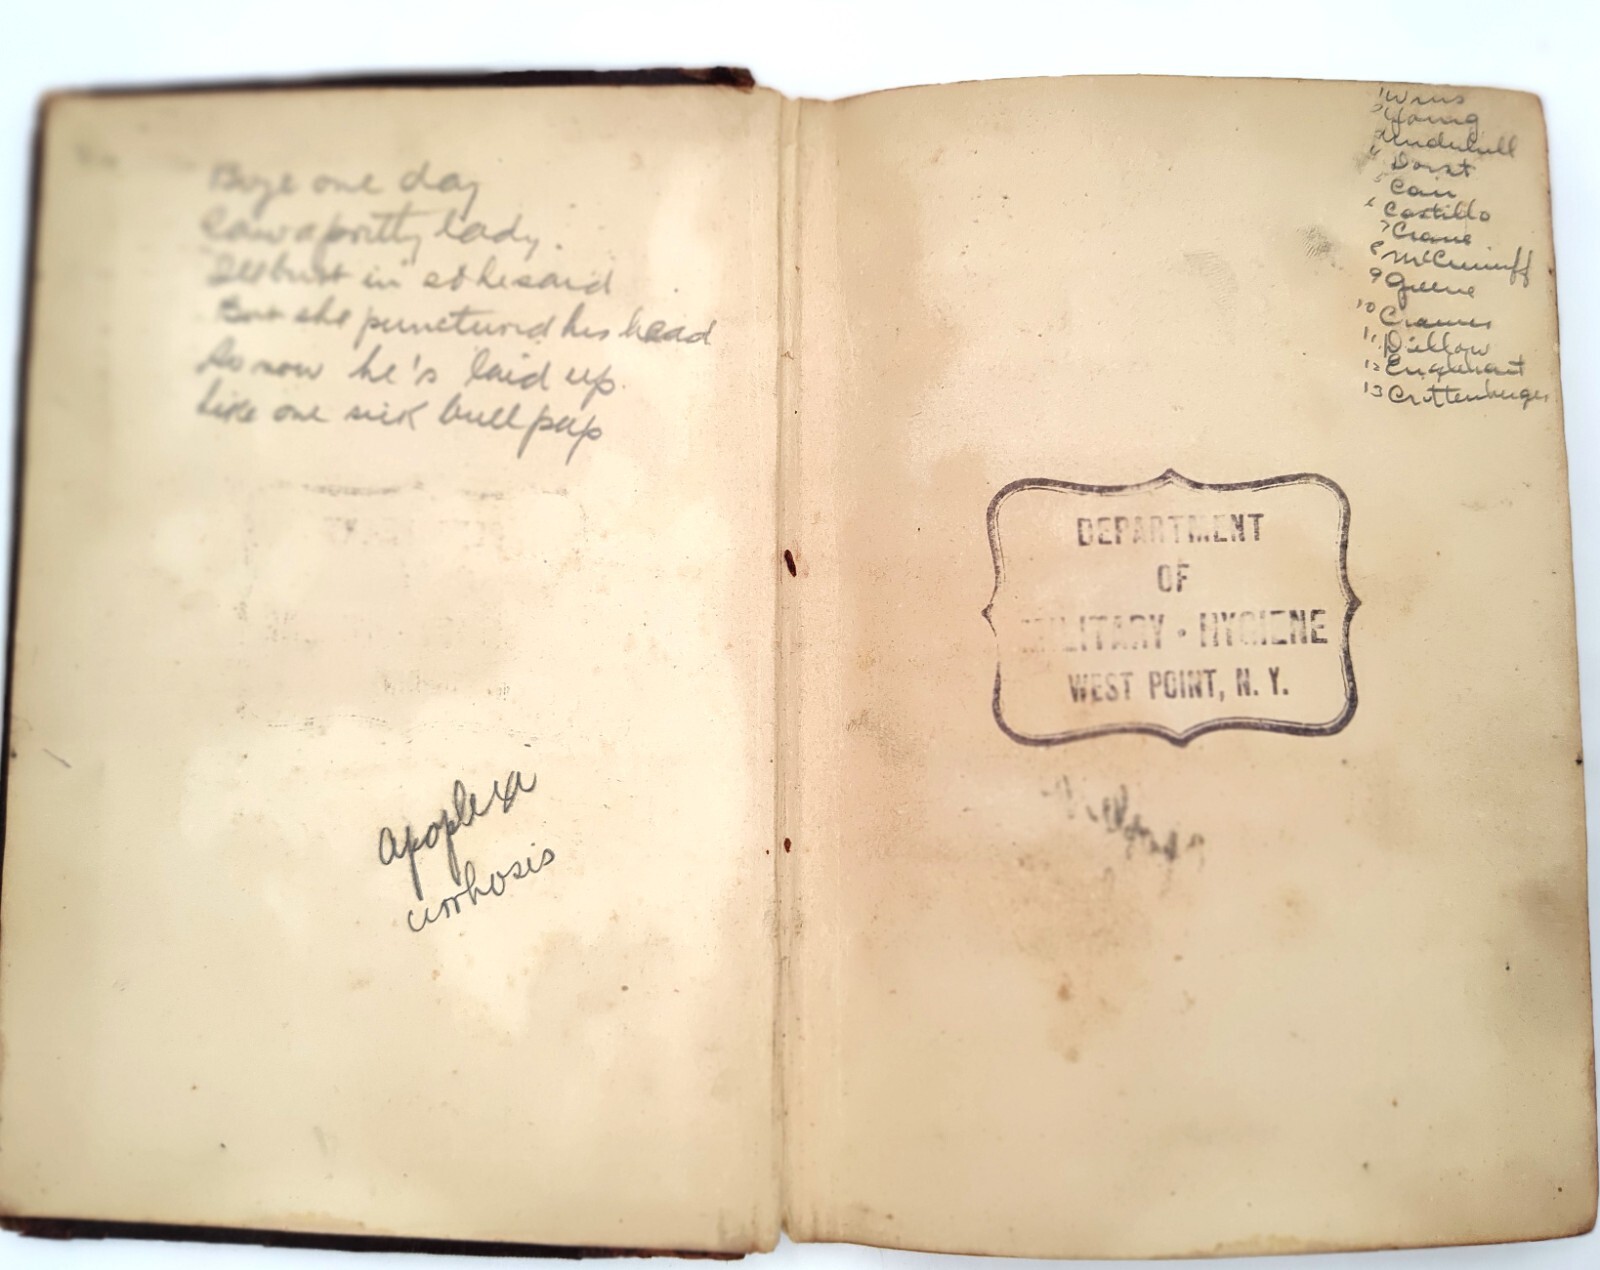 one day
Saw a pretty lady.
in so he said
But she punctured his head
So now he's laid up.
Like one sick bull pup
Apoplexa
cirrhosis
2 Young
3 Underhill
4 Dorst
5 Cain
6 Castillo
7 Crane
8
9 Greene
10
11 Dillow
12
13
DEPARTMENT
OF
MILITARY · HYGIENE
WEST POINT, N. Y.